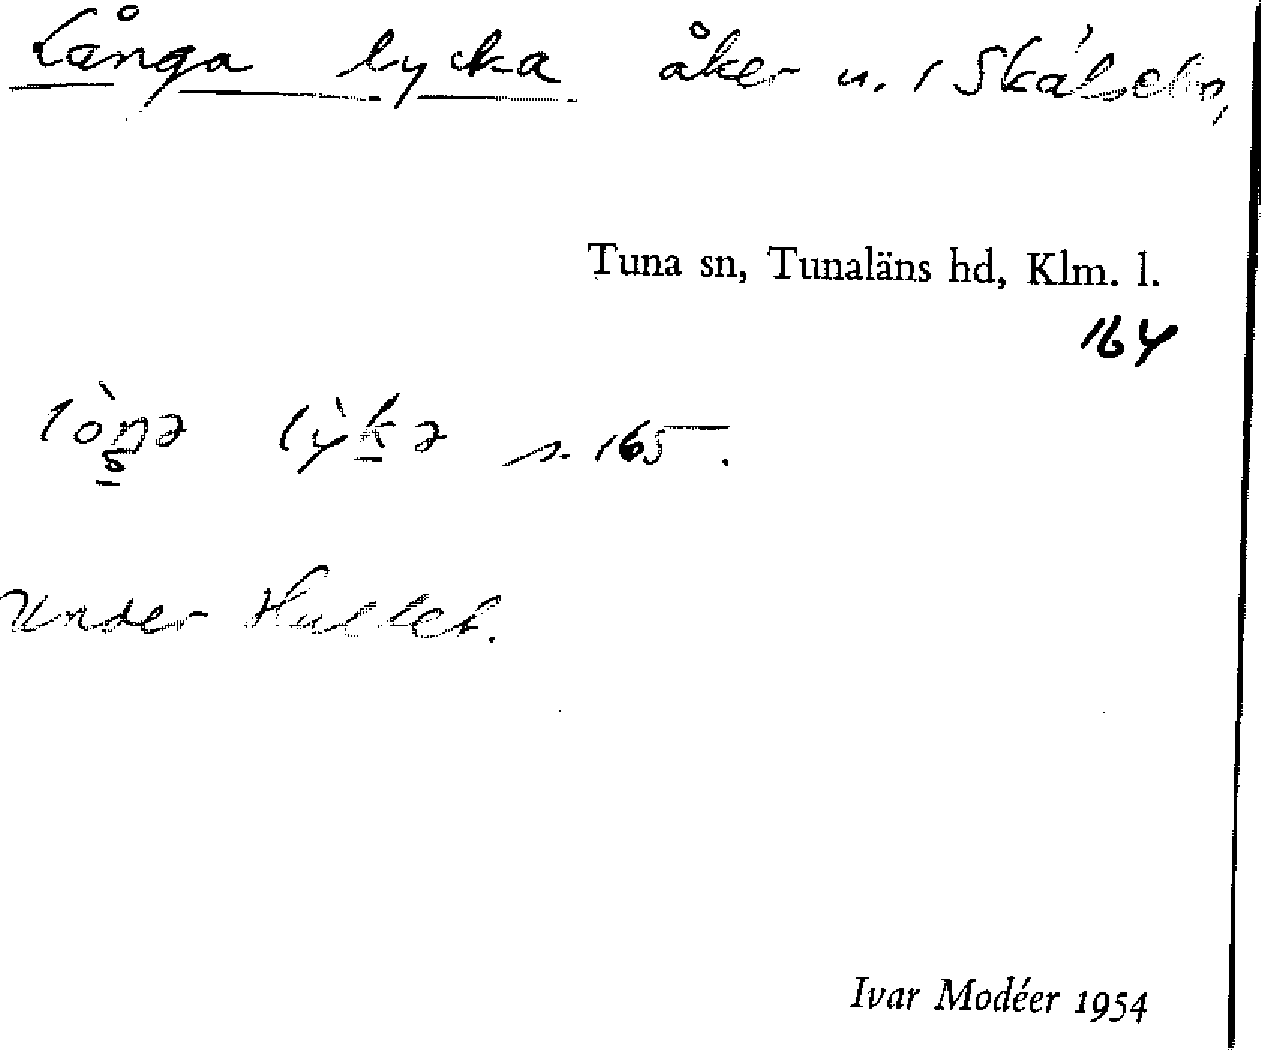 Långa lycka åker u. 1 Skálselm,
Tuna sn, Tunaläns hd, Klm. l.
164
s. 165.
Under Hullet.
Ivar Modéer 1954